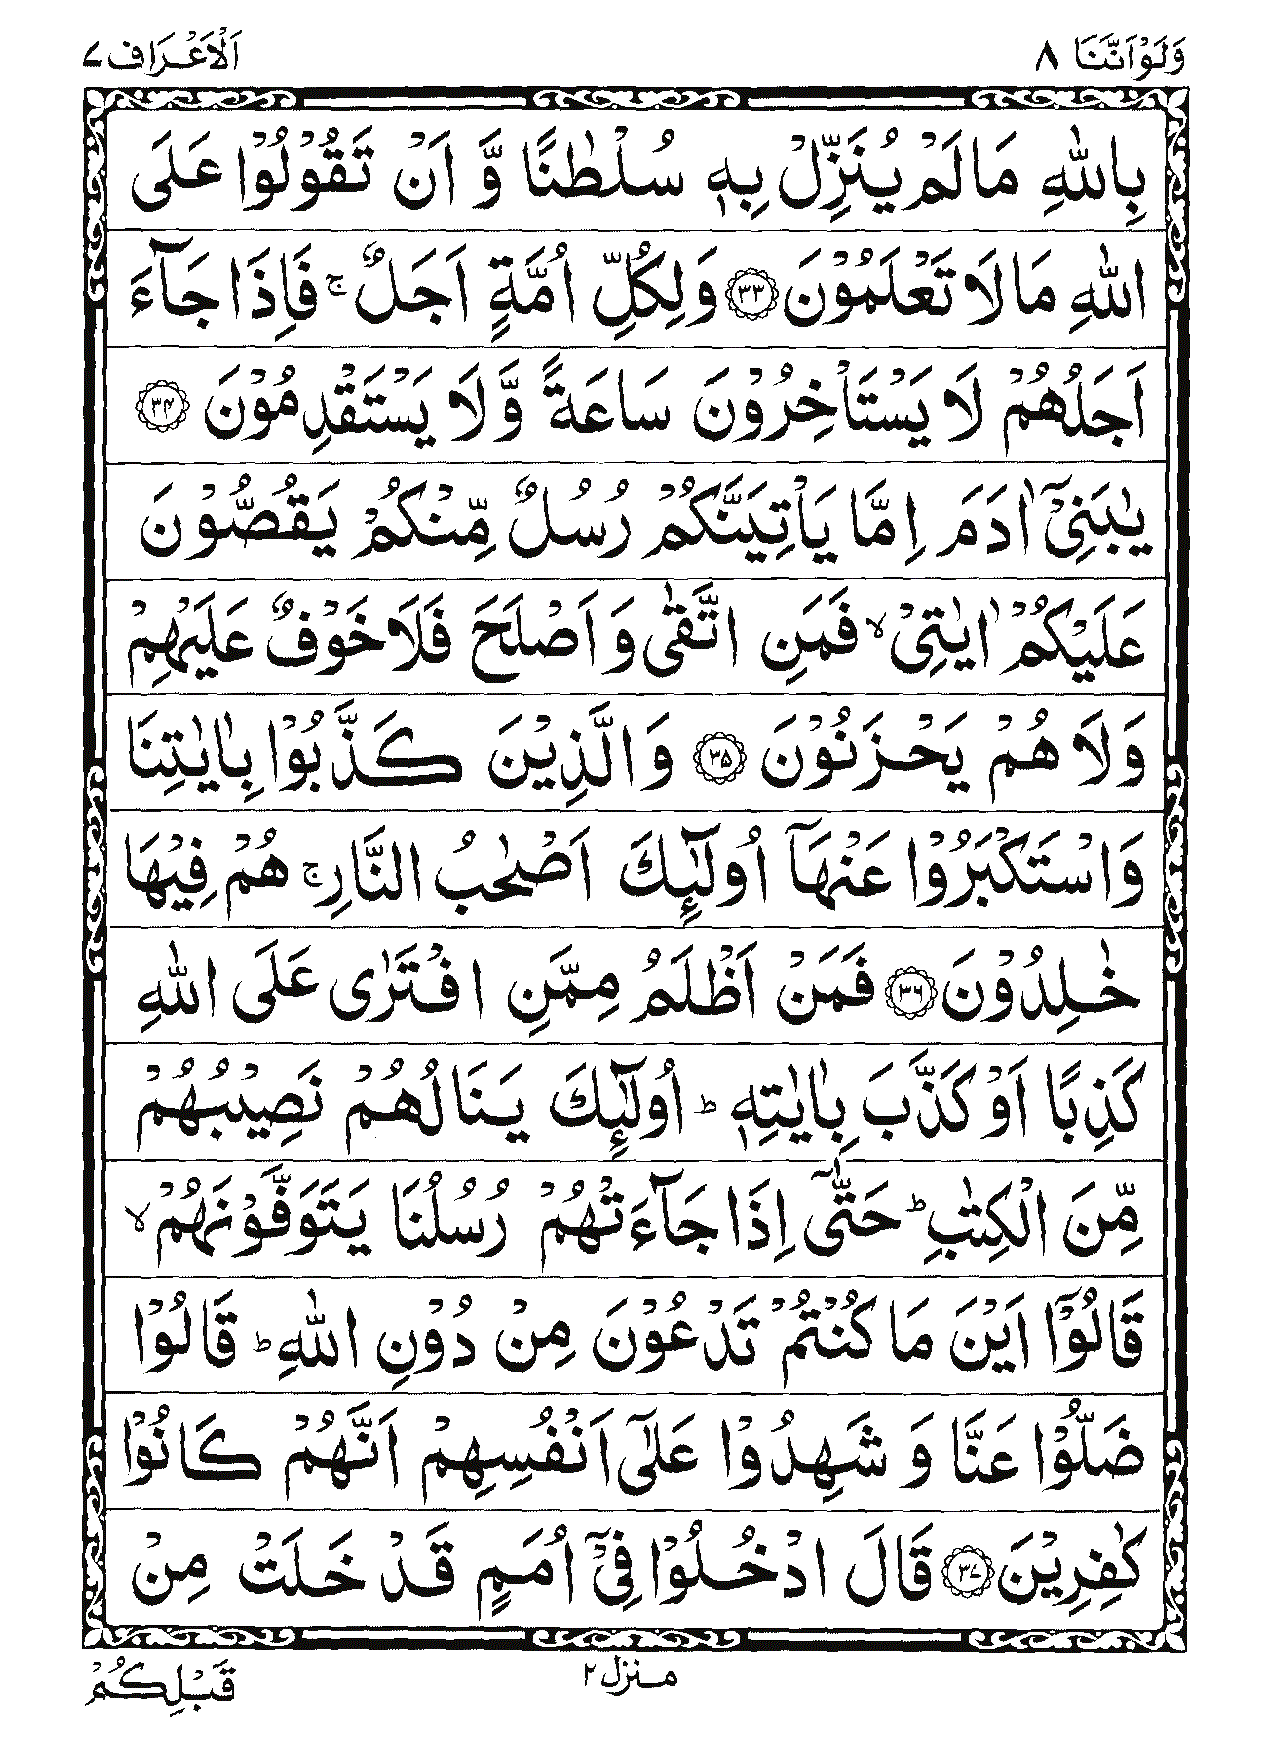 وَلَوْاَنَّنَا ٨
اَلْاَعْرَاف ٧
بِاللّٰهِ مَا لَمْ يُنَزِّلْ بِهٖ سُلْطٰنًا وَّ اَنْ تَقُوْلُوْا عَلَى
اللّٰهِ مَا لَا تَعْلَمُوْنَ ۝٣٣ وَلِكُلِّ اُمَّةٍ اَجَلٌ ۚ فَاِذَا جَآءَ
اَجَلُهُمْ لَا يَسْتَاْخِرُوْنَ سَاعَةً وَّلَا يَسْتَقْدِمُوْنَ ۝٣٤
يٰبَنِيْۤ اٰدَمَ اِمَّا يَاْتِيَنَّكُمْ رُسُلٌ مِّنْكُمْ يَقُصُّوْنَ
عَلَيْكُمْ اٰيٰتِيْ ۙ فَمَنِ اتَّقٰى وَاَصْلَحَ فَلَا خَوْفٌ عَلَيْهِمْ
وَلَا هُمْ يَحْزَنُوْنَ ۝٣٥ وَالَّذِيْنَ كَذَّبُوْا بِاٰيٰتِنَا
وَاسْتَكْبَرُوْا عَنْهَاۤ اُولٰٓئِكَ اَصْحٰبُ النَّارِ ۚ هُمْ فِيْهَا
خٰلِدُوْنَ ۝٣٦ فَمَنْ اَظْلَمُ مِمَّنِ افْتَرٰى عَلَى اللّٰهِ
كَذِبًا اَوْ كَذَّبَ بِاٰيٰتِهٖ ؕ اُولٰٓئِكَ يَنَالُهُمْ نَصِيْبُهُمْ
مِّنَ الْكِتٰبِ ؕ حَتّٰۤى اِذَا جَآءَتْهُمْ رُسُلُنَا يَتَوَفَّوْنَهُمْ ۙ
قَالُوْۤا اَيْنَ مَا كُنْتُمْ تَدْعُوْنَ مِنْ دُوْنِ اللّٰهِ ؕ قَالُوْا
ضَلُّوْا عَنَّا وَ شَهِدُوْا عَلٰۤى اَنْفُسِهِمْ اَنَّهُمْ كَانُوْا
كٰفِرِيْنَ ۝٣٧ قَالَ ادْخُلُوْا فِيْۤ اُمَمٍ قَدْ خَلَتْ مِنْ
منزل ٢
قَبْلِكُمْ